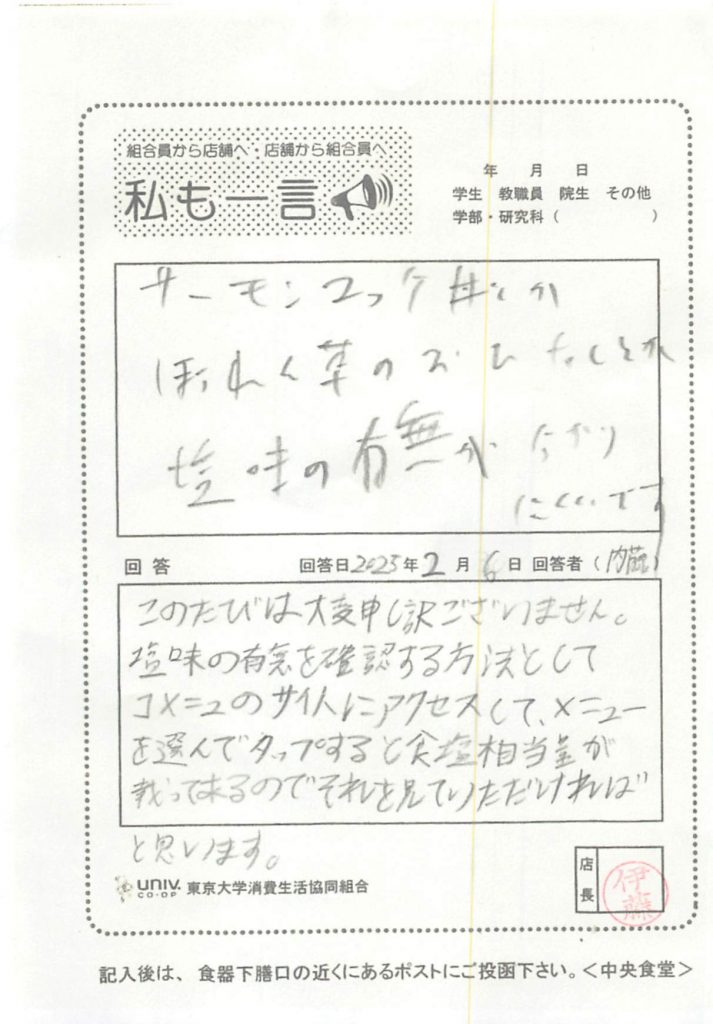 組合員から店舗へ・店舗から組合員へ
私も一言
年 月 日
学生 教職員 院生 その他
学部・研究科（ ）
サーモンユッケ丼とか
ほうれん草のおひたしとか
塩味の有無が わかり
にくいです
回答 回答日2025年2月6日 回答者（内藤）
このたびは大変申し訳ございません。
塩味の有無を確認する方法として
コメニュのサイトにアクセスして、メニュー
を選んでタップすると食塩相当量が
載って来るのでそれを見ていただければ
と思います。
UNIV. CO-OP 東京大学消費生活協同組合
店長
伊藤
記入後は、食器下膳口の近くにあるポストにご投函下さい。＜中央食堂＞